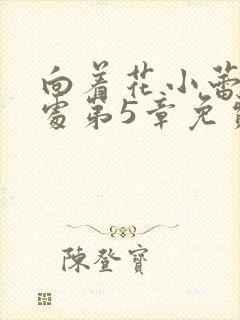 向着花小蕾
处第5章免
陳登寶